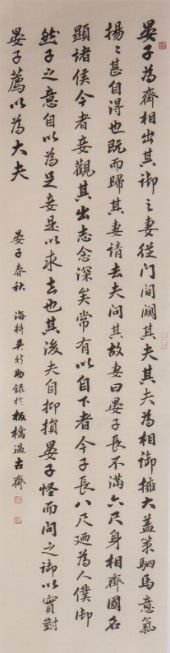 晏子為齊相出其御之妻從門間闚其夫其夫為相御擁大蓋策駟馬意氣
揚揚甚自得也既而歸其妻請去夫問其故妻曰晏子長不滿六尺身相齊國名
顯諸侯今者妾觀其出志念深矣常有以自下者今子長八尺迺為人僕御
然子之意自以為足妾是以求去也其後夫自抑損晏子怪而問之御以實對
晏子薦以為大夫
晏子春秋 海科吳 錄於板橋溫古齋